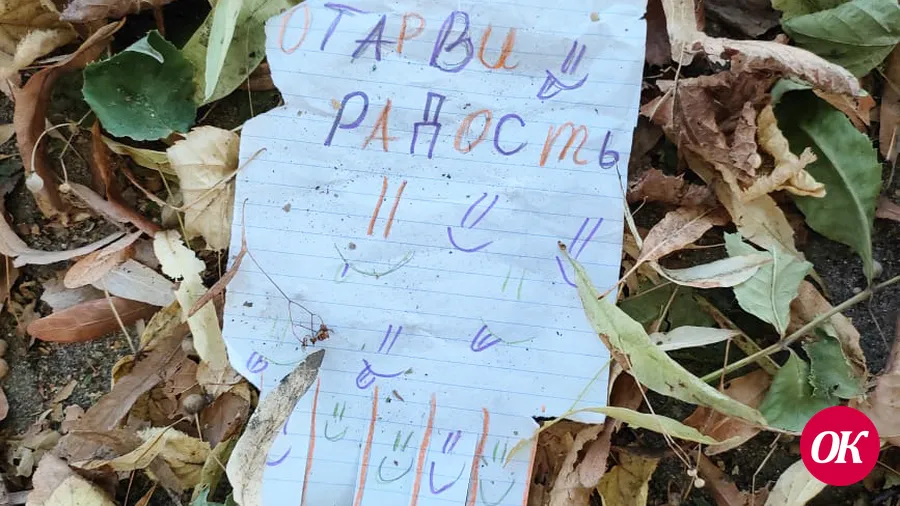 ОТАРВИ
РАДОСТЬ
ОК